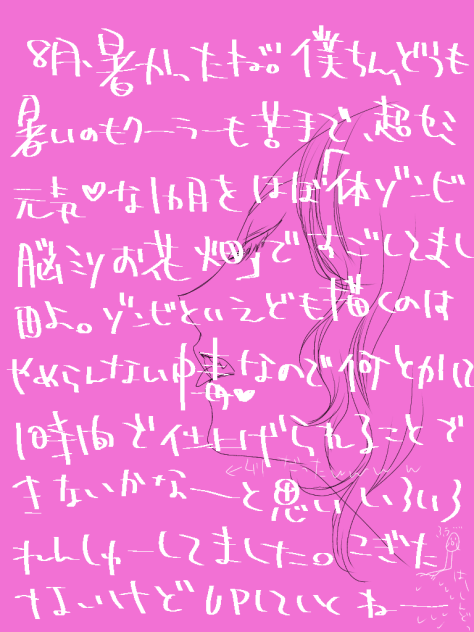 8月、暑かったね。僕ちん、どうも
暑いのもクーラーも苦手で、超セミ
元気♥な1か月をほぼ「体ゾンビ
脳ミソお花畑」ですごしてまし
田よ。ゾンビといえども描くのは
やめらんない性なので何とかして
1時間で仕上げられることで
きないかなーと思いいろいろ
れんしゅーしてました。にぎた
ないけどUPしていくねー